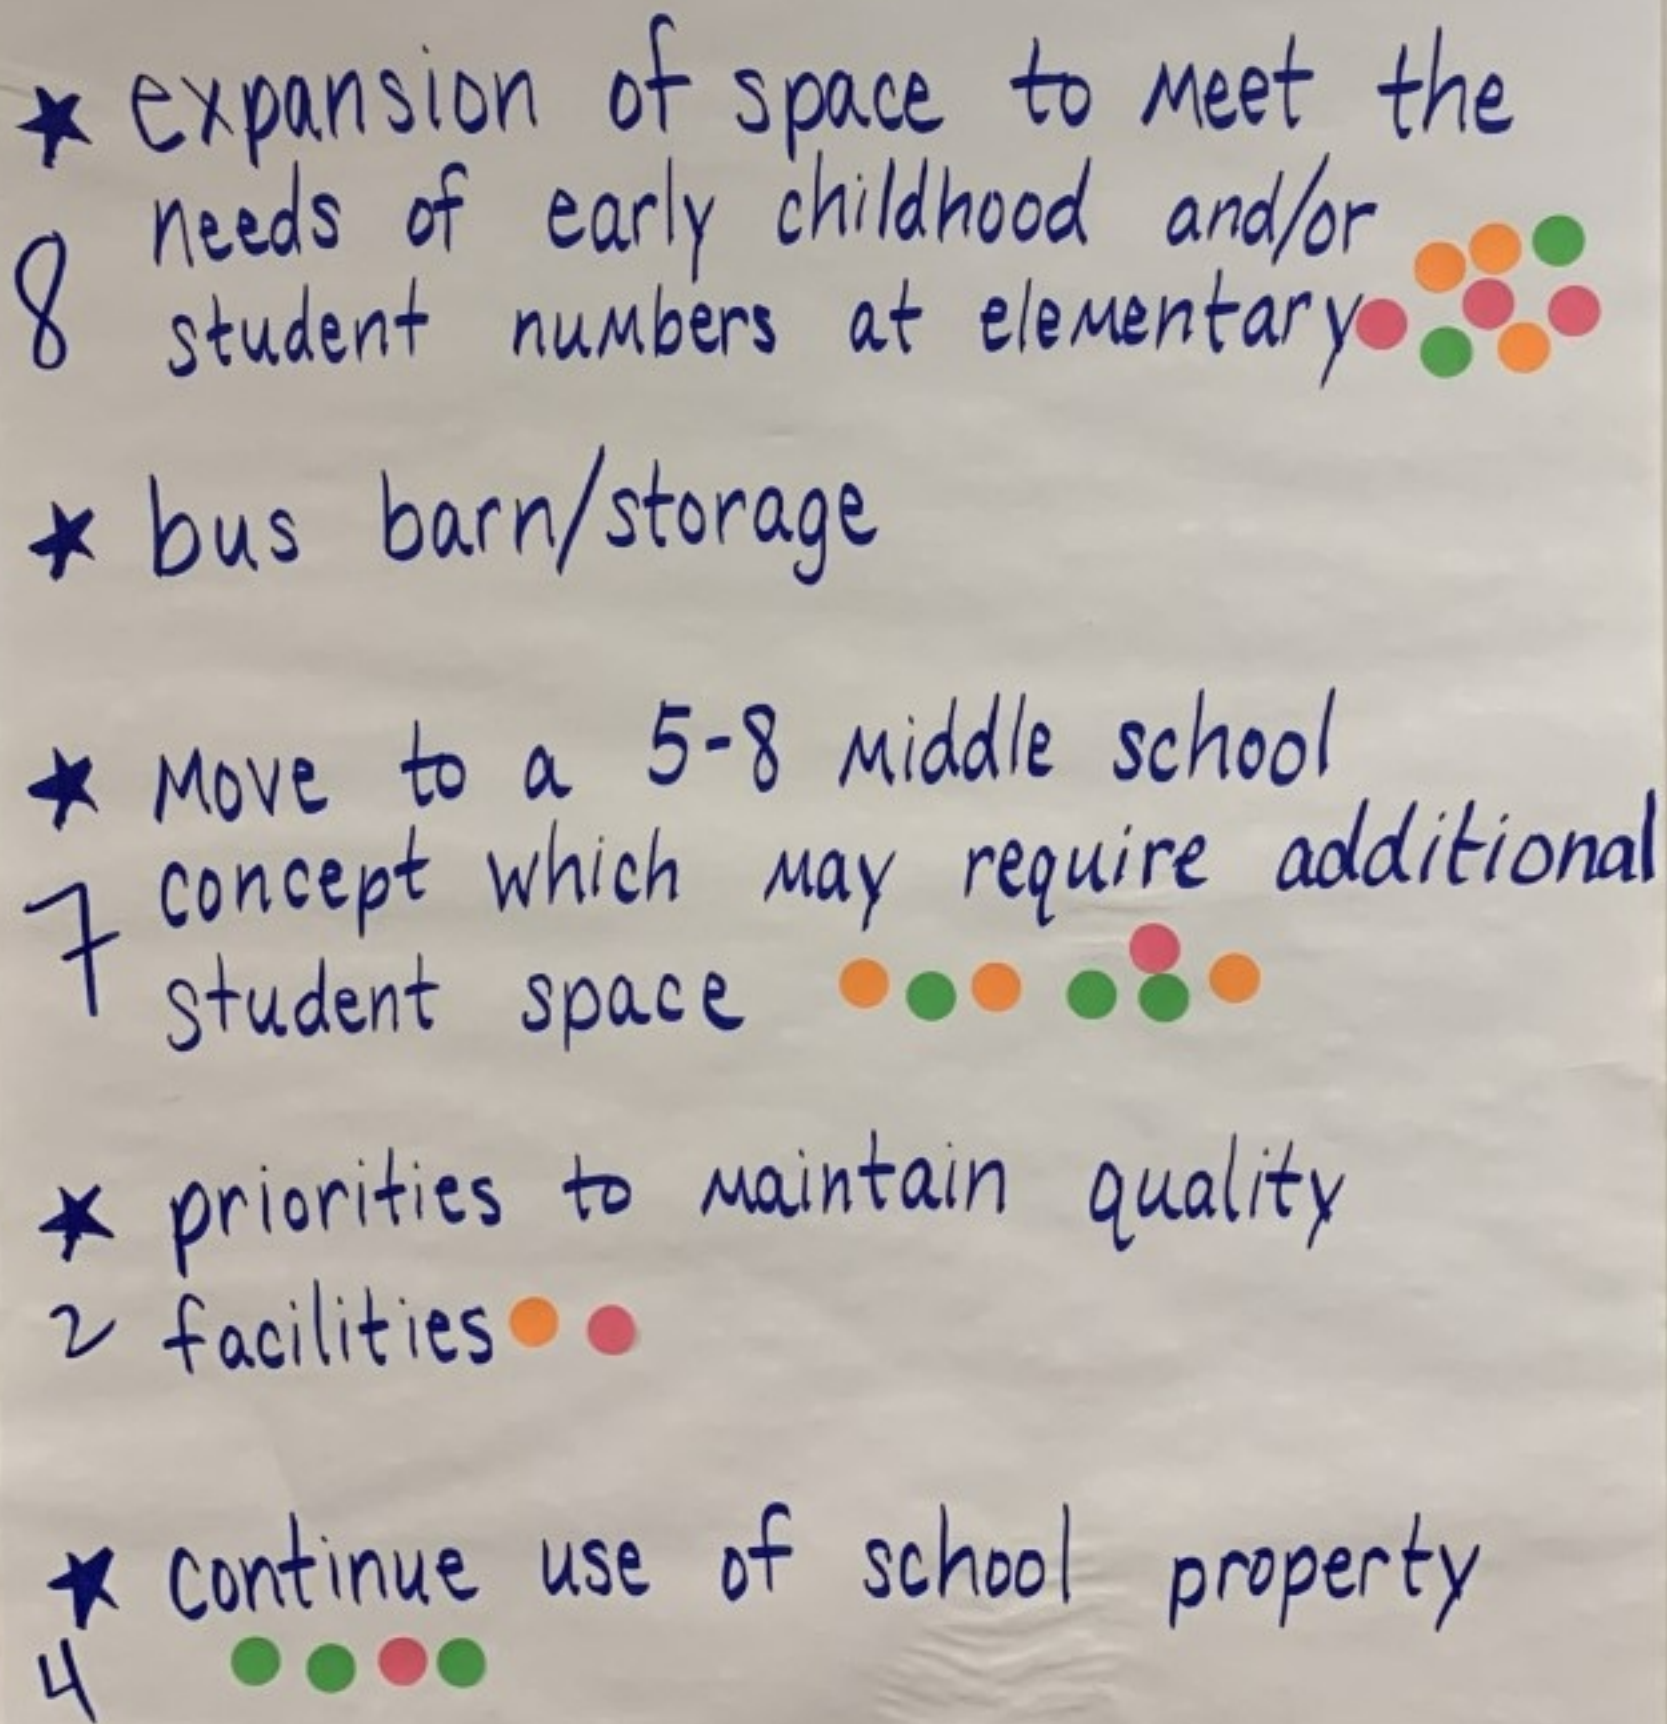 ★ expansion of space to meet the
needs of early childhood and/or
8 student numbers at elementary
★ bus barn/storage
★ Move to a 5-8 Middle school
concept which may require additional
7 student space
★ priorities to maintain quality
2 facilities
★ continue use of school property
4